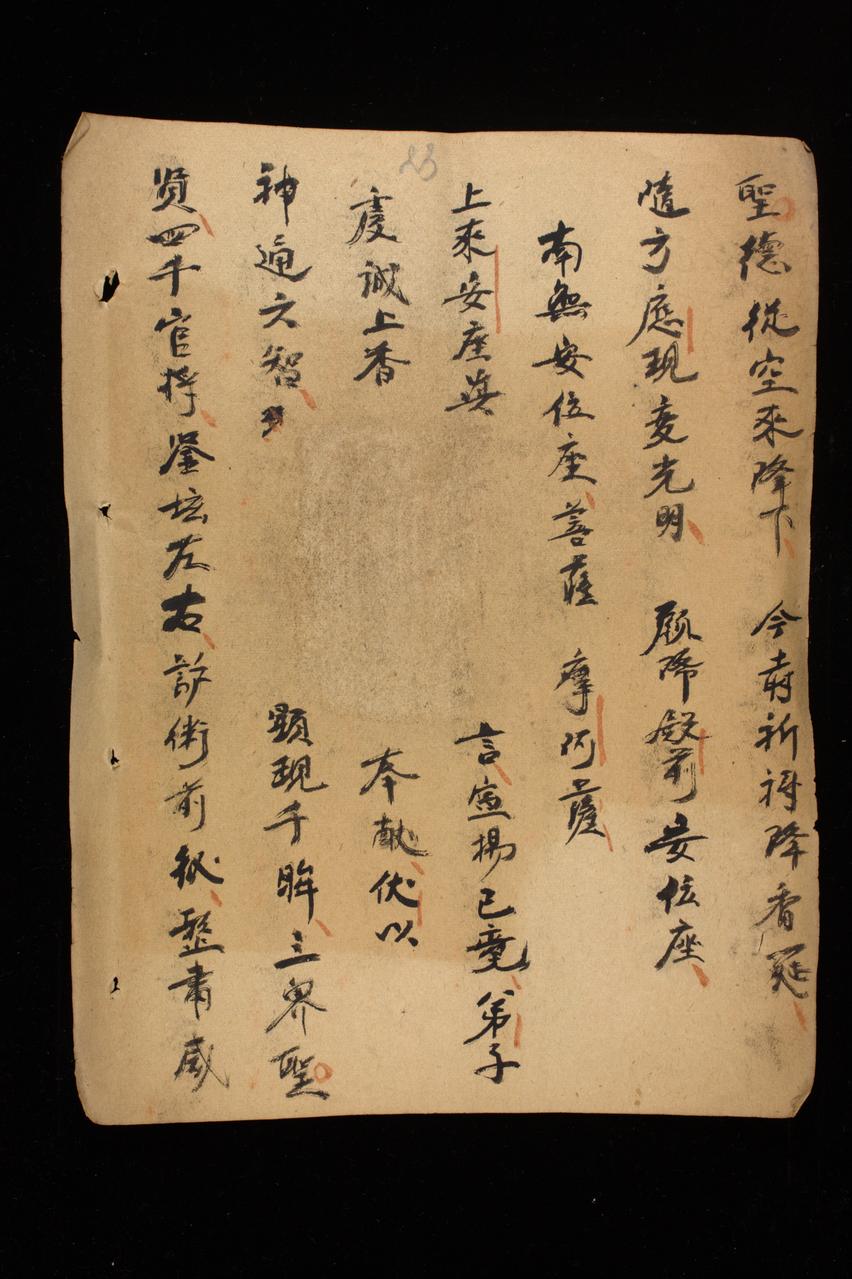 聖德從空來降下 今時祈禱降香筵
隨方應現変光明 願降殿前安位座
南無安位座菩薩 摩訶薩
上來安座真 言宣揚已竟弟子
虔誠上香 奉献伏以
神通六智 顕現千眸三界聖
賢四千官将 坛左右 術前 整肅威
23